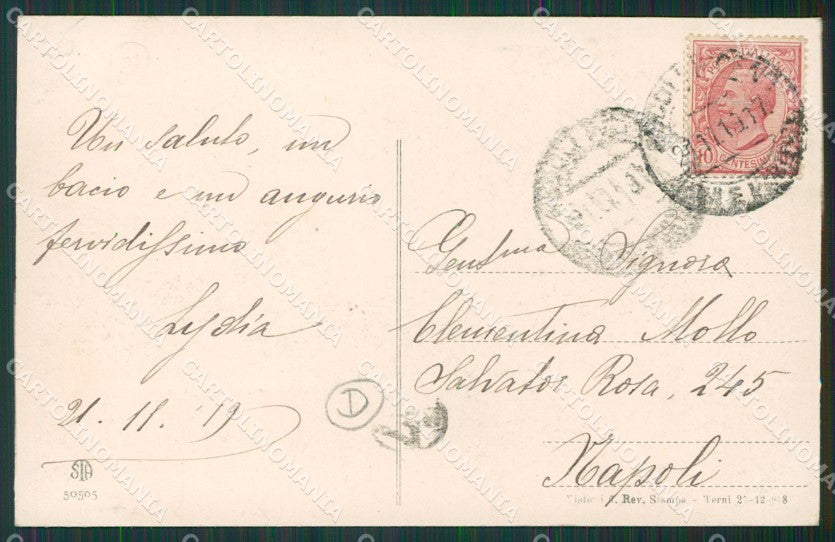 Un saluto, un
bacio e un augurio
fervidissimo
Lydia
21. 11. '19
STA
50505
10 CENTESIMI
D
Gent.ma Signora
Clementina Mollo
Salvator Rosa, 245
Napoli
Rev. Stampa - Terni 21-12-918
CARTOLINOMANIA